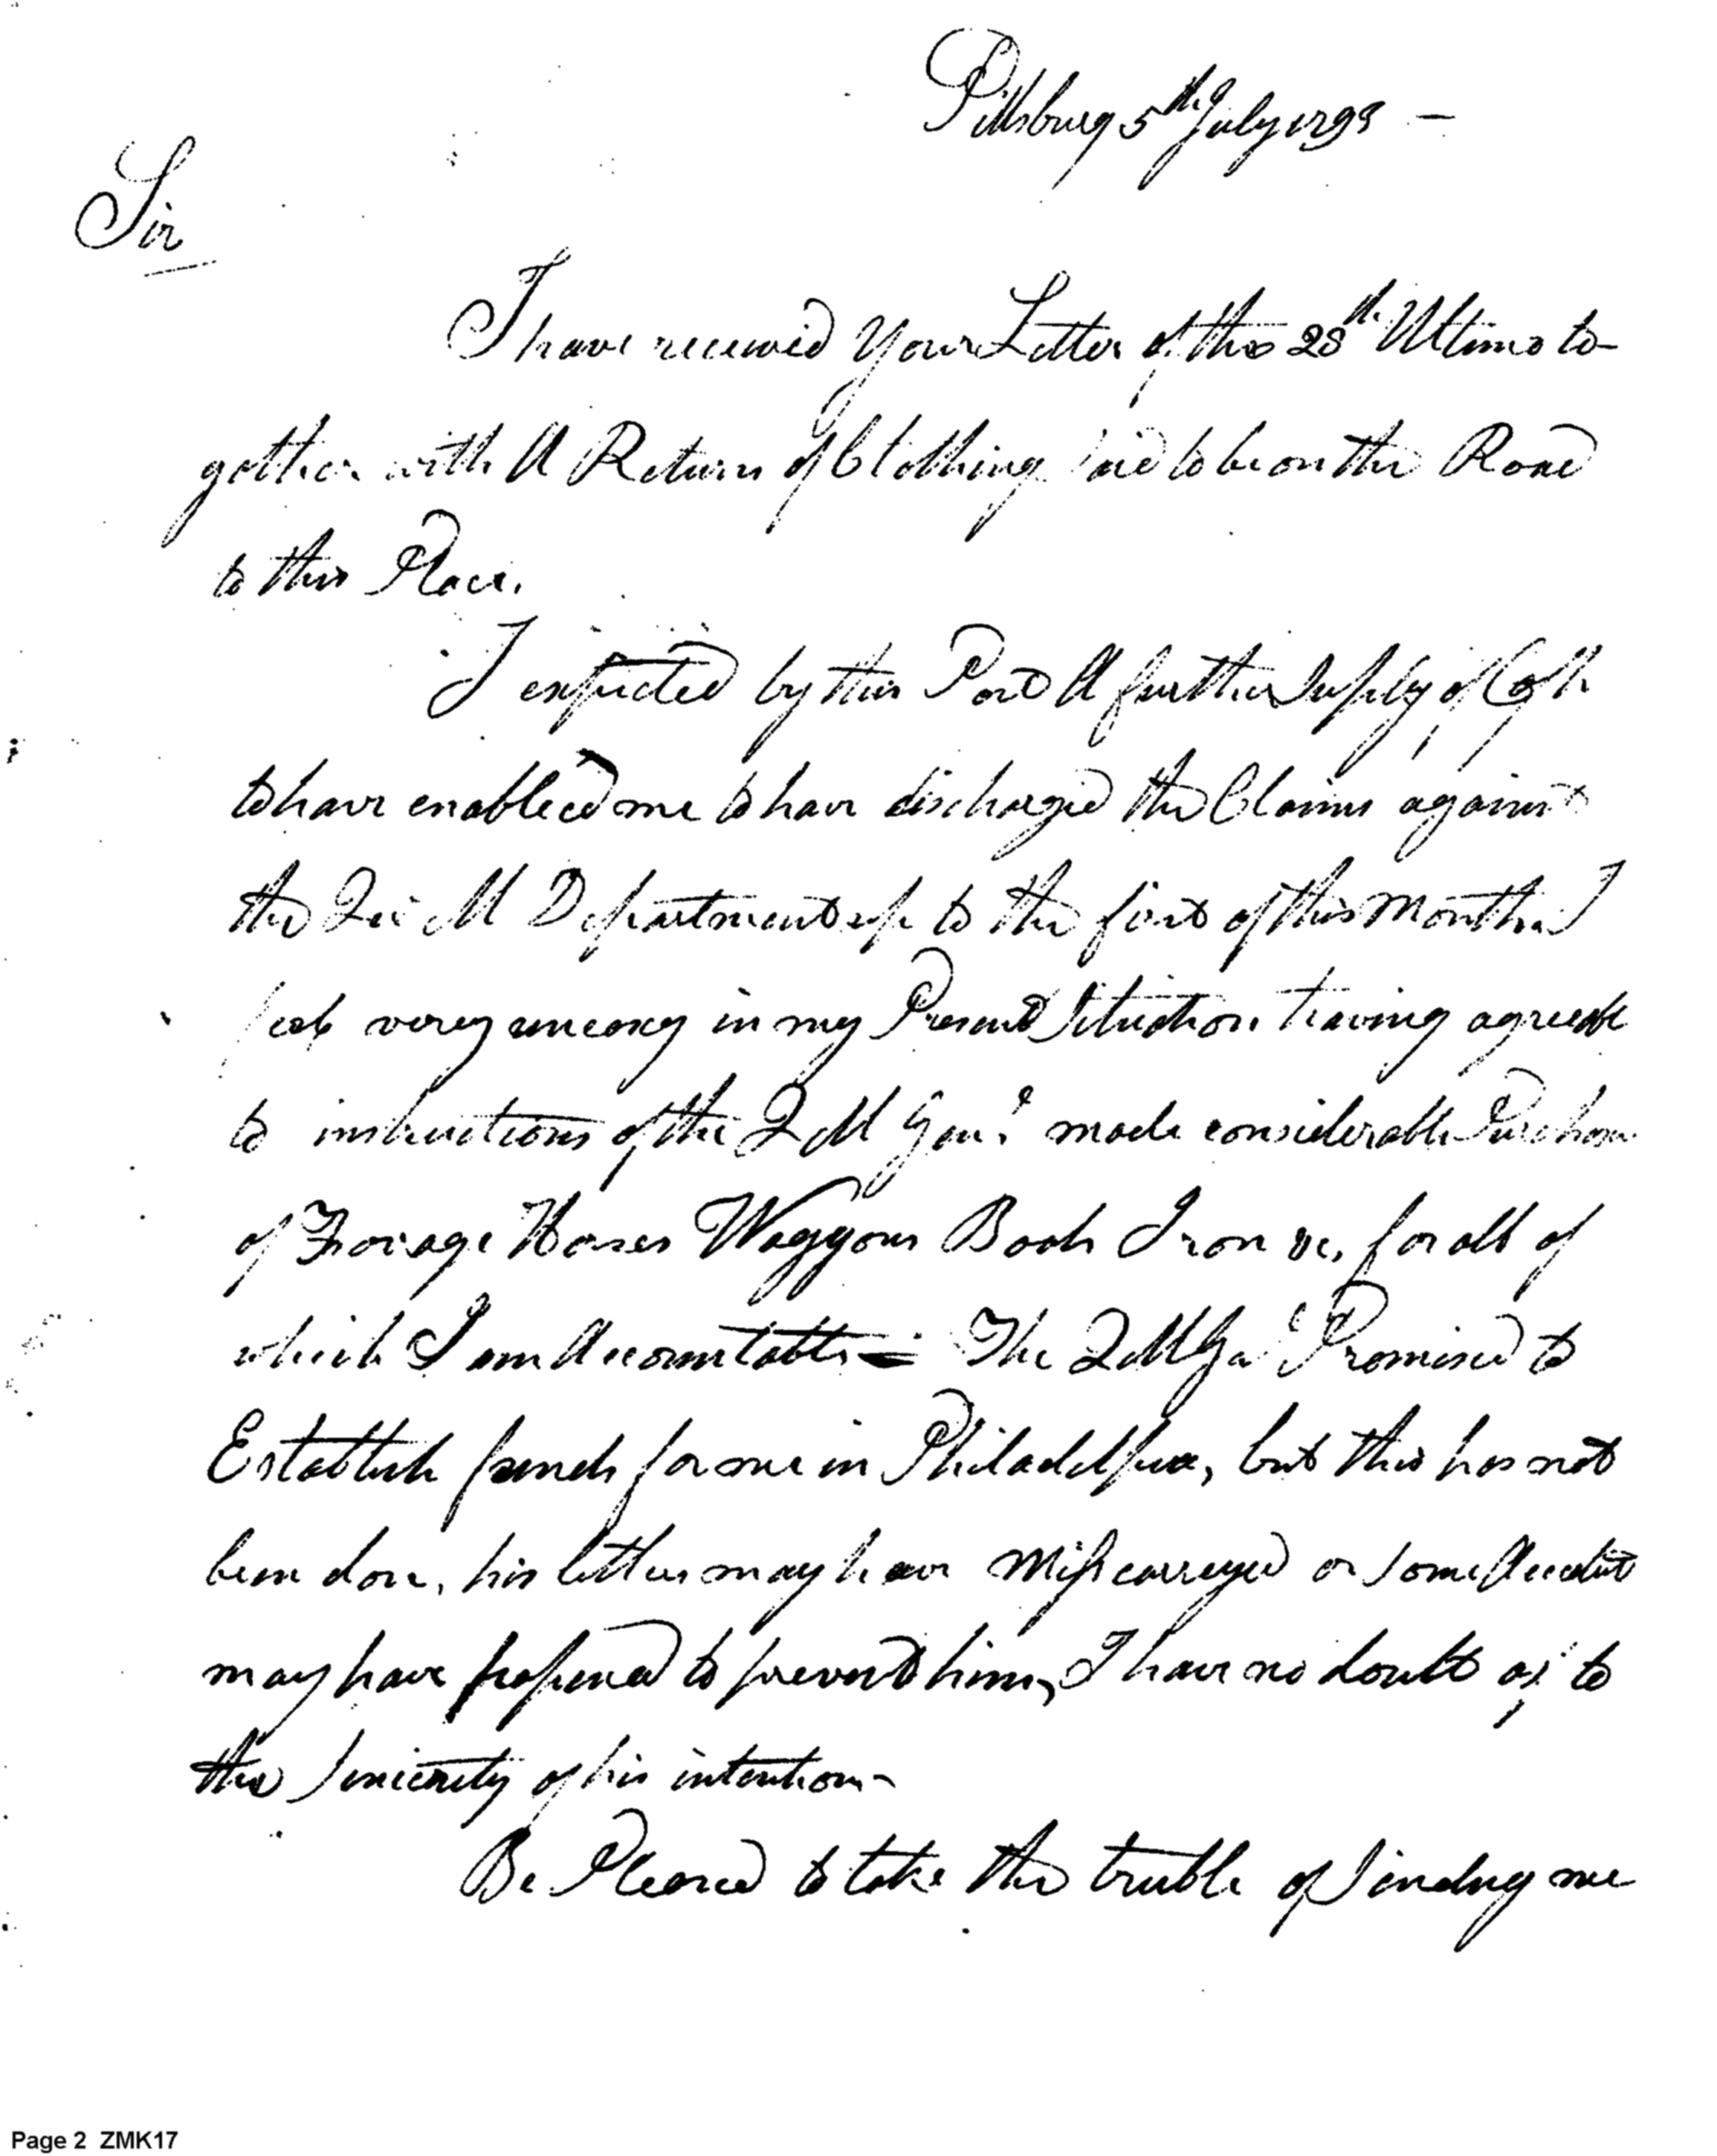 Pittsburg 5th July 1793 —
Sir
I have received Your Letter of the 28th Ultimo to-
gether with A Return of Clothing said to be on the Road
to this Place.
I expected by this Post A further Supply of Cash
to have enableed me to have discharged the Claims against
the M Department up to the first of this Month. I
feel verey uneasy in my Present Situation having agreeable
to instructions of the Q M Genl made considerable Purchases
of Forage Horses Waggons Boats Iron &c, for all of
which I am Accountable — The Q M Gl Promised to
Establish funds for me in Philadelphia, but this has not
been don, his letters may have Misscarreyed or some Accedent
may have hapened to prevent him, I have no doubt as to
the Sincerity of his intention -
Be Pleased to take the truble of Sending me
Page 2 ZMK17